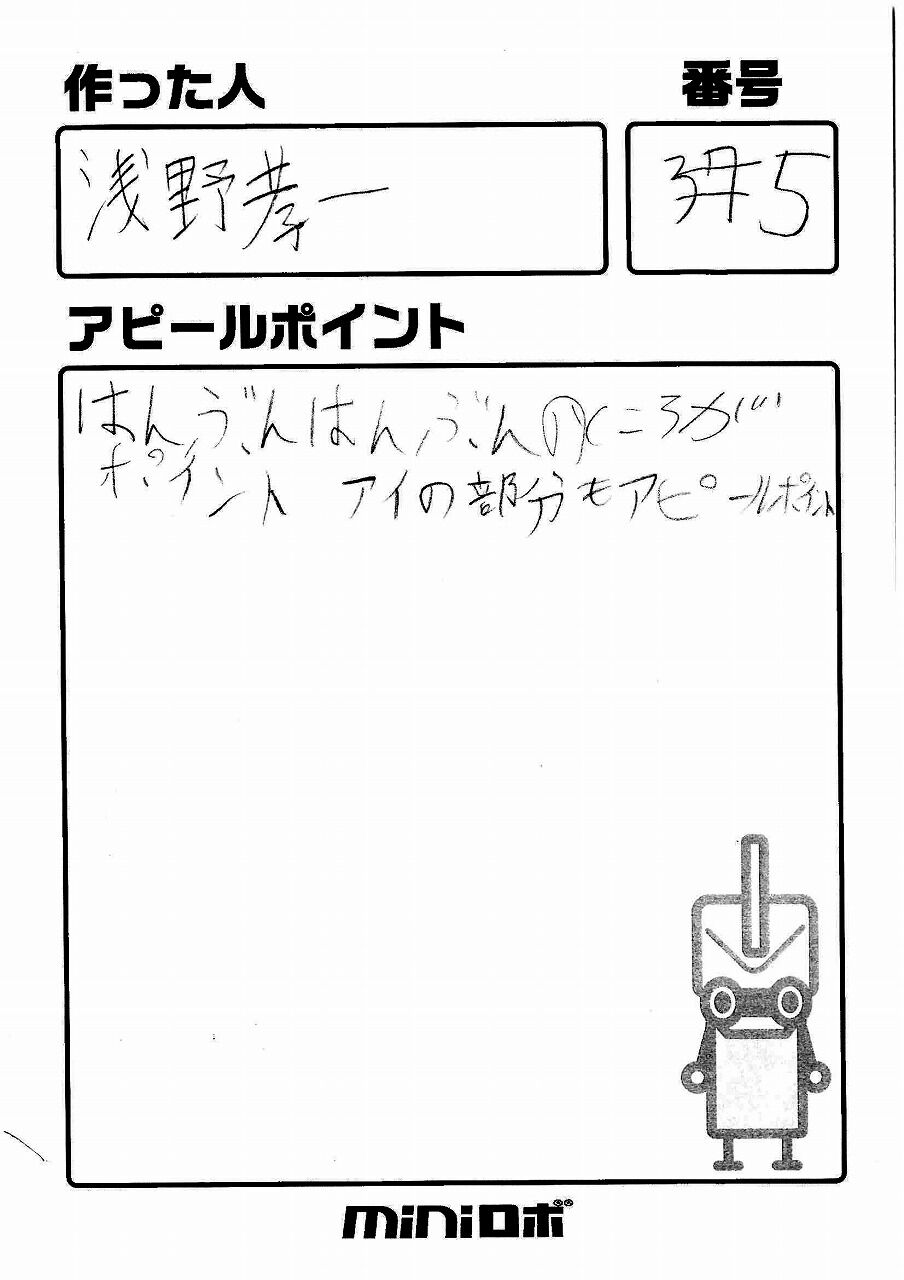 作った人
番号
浅野孝一
5
アピールポイント
はんぶんはんぶんのところが
ポイント アイの部分もアピールポイント
miniロボ